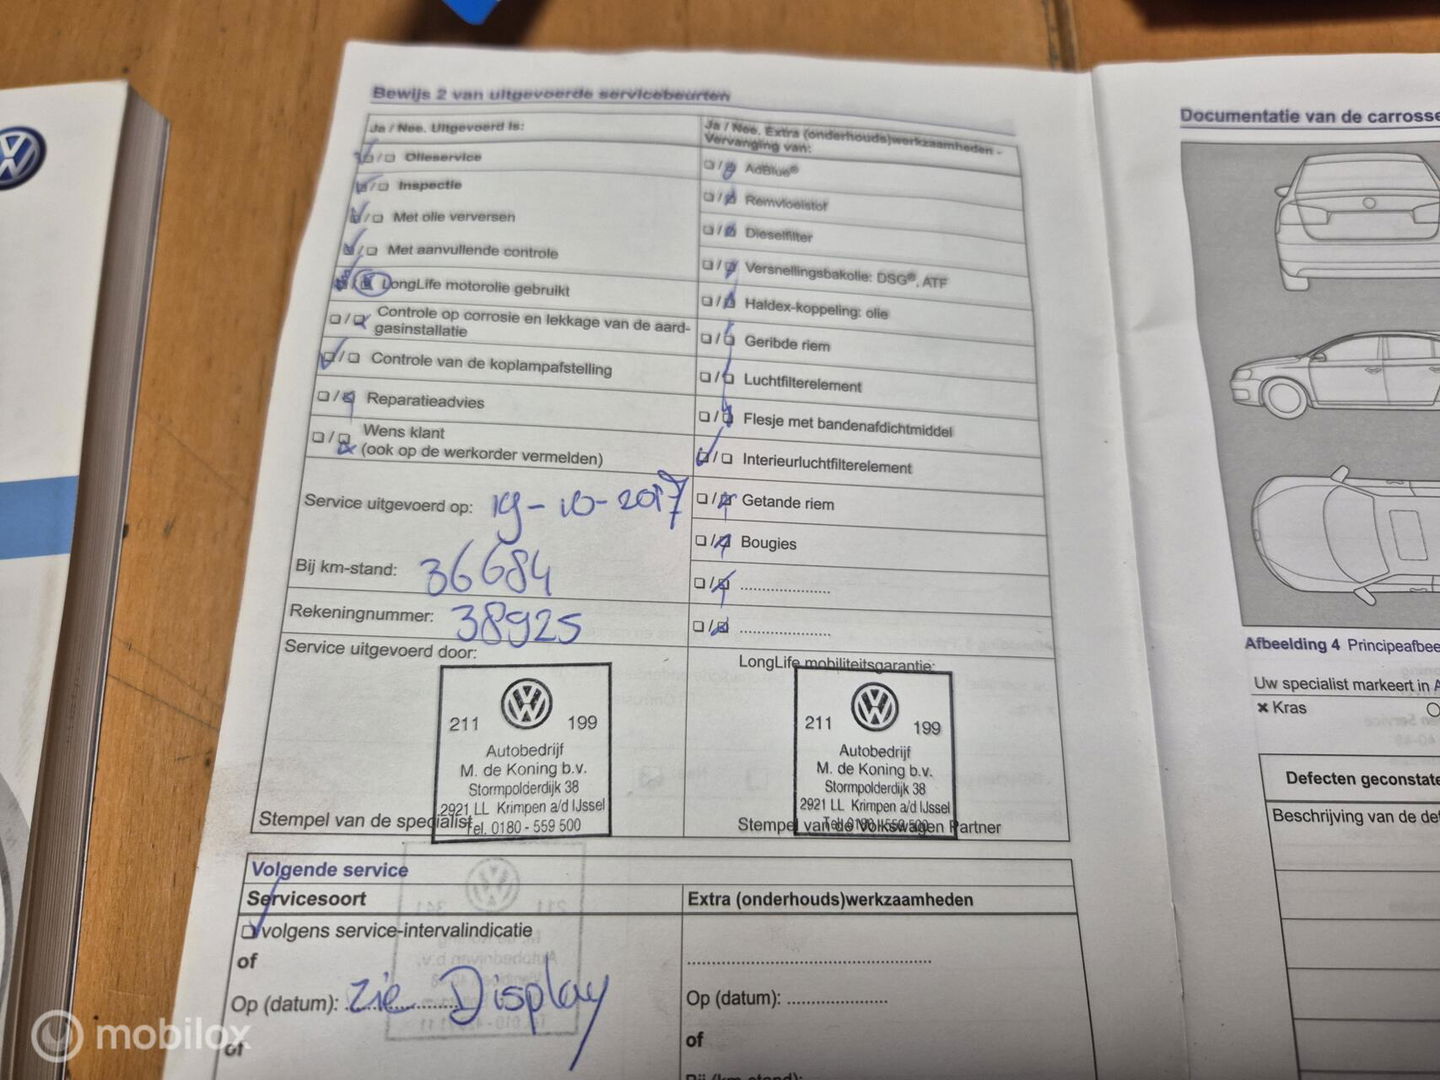 Bewijs 2 van uitgevoerde servicebeurten
Ja / Nee. Uitgevoerd is:
Olieservice
Inspectie
Met olie verversen
Met aanvullende controle
LongLife motorolie gebruikt
Controle op corrosie en lekkage van de aard-
gasinstallatie
Controle van de koplampafstelling
Reparatieadvies
Wens klant
(ook op de werkorder vermelden)
Ja / Nee. Extra (onderhouds)werkzaamheden -
Vervanging van:
AdBlue®
Remvloeistof
Dieselfilter
Versnellingsbakolie: DSG®, ATF
Haldex-koppeling: olie
Geribde riem
Luchtfilterelement
Flesje met bandenafdichtmiddel
Interieurluchtfilterelement
Getande riem
Bougies
....................
....................
Service uitgevoerd op: 19-10-2017
Bij km-stand: 36684
Rekeningnummer: 38925
Service uitgevoerd door:
211 199
Autobedrijf
M. de Koning b.v.
Stormpolderdijk 38
2921 LL Krimpen a/d IJssel
Tel. 0180 - 559 500
Stempel van de specialist
LongLife mobiliteitsgarantie:
211 199
Autobedrijf
M. de Koning b.v.
Stormpolderdijk 38
2921 LL Krimpen a/d IJssel
Tel. 0180 - 559 500
Stempel van de Volkswagen Partner
Volgende service
Servicesoort
volgens service-intervalindicatie
of
Op (datum): zie Display
of
Extra (onderhouds)werkzaamheden
Op (datum): ....................
of
Bij (km-stand):
Documentatie van de carrosse
Afbeelding 4 Principeafbee
Uw specialist markeert in A
× Kras
Defecten geconstate
Beschrijving van de def
mobilox